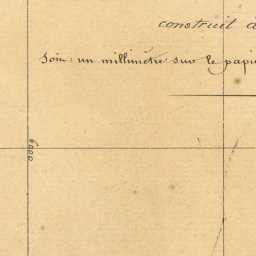 construit à
Soit : un millimètre sur le papie
6000